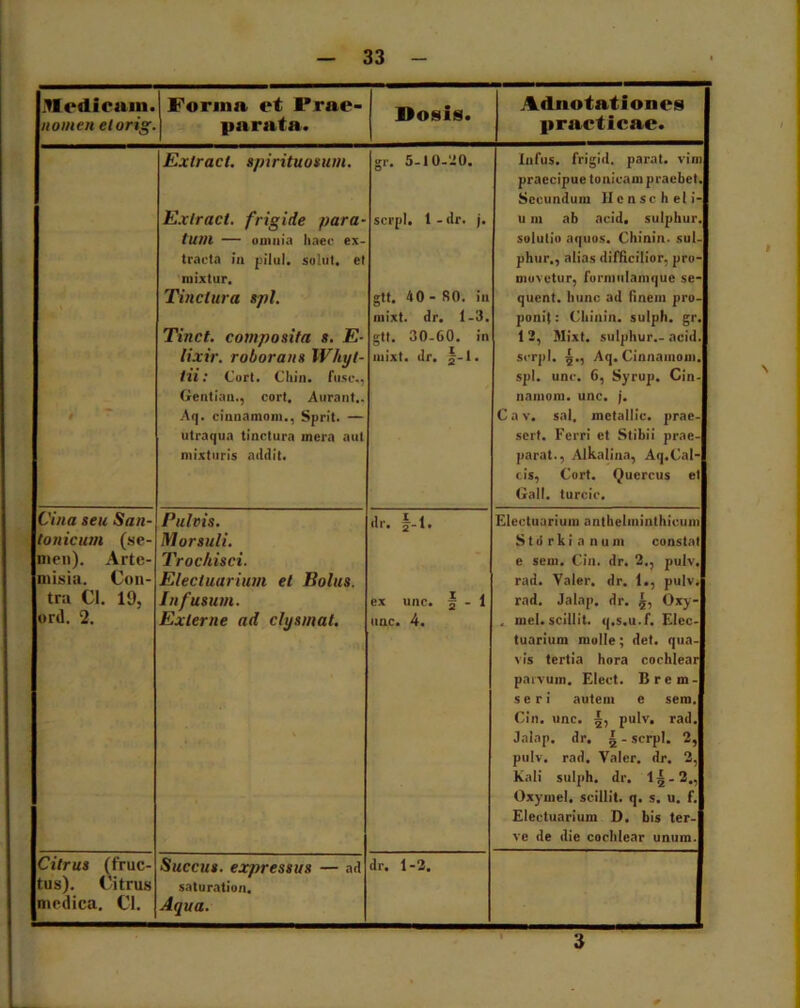 — 33 —
Medicam.
nomen et orig.
Forma et Prae-
parata.
Dosis.
Adnotationes
practicae.
Extract. spirituosum.
Extract. frigide para-
tum — omnia haec ex-
tracta in pilul. solut. et
mixtur.
Tinctura spl.
Tinct. composita s. E-
lixir. roborans Whyt-
tii: Cort. Chin. fusc.,
Gentian., cort. Aurant..
Aq. cinnamom., Sprit. —
utraqua tinctura mera aut
mixturis addit.
gr. 5-10-20.
scrpl. 1-dr. j.
gtt. 40-80. in
mixt. dr. 1-3.
gtt. 30-60. in
mixt. dr. ½-1.
Infus. frigid. parat. vim
praecipue tonicam praebet.
Secundum Henscheli-
um ab acid. sulphur.
solutio aquos. Chinin. sul-
phur., alias difficilior, pro-
movetur, formulamque se-
quent. hunc ad finem pro-
ponit: Chinin. sulph. gr.
12, Mixt. sulphur.-acid.
scrpl. ½., Aq. Cinnamom.
spl. unc. 6, Syrup. Cin-
namom. unc. j.
Cav. sal. metallic. prae-
sert. Ferri et Stibii prae-
parat., Alkalina, Aq.Cal-
cis, Cort. Quercus et
Gall. turcic.
Cina seu San-
tonicum (se-
men). Arte-
misia. Con-
tra Cl. 19,
ord. 2.
Pulvis.
Morsuli.
Trochisci.
Electuarium et Bolus.
Infusum.
Externe ad clysmat.
dr. ½-1.
ex unc. ½ - 1
unc. 4.
Electuarium anthelminthicum
Störkianum constat
e sem. Cin. dr. 2., pulv.
rad. Valer. dr. 1., pulv.
rad. Jalap. dr. ½, Oxy-
mel. scillit. q.s.u.f. Elec-
tuarium molle; det. qua-
vis tertia hora cochlear
parvum. Elect. Brem-
seri autem e sem.
Cin. unc. ½, pulv. rad.
Jalap. dr. ½ - scrpl. 2,
pulv. rad. Valer. dr. 2,
Kali sulph. dr. 1½-2.,
Oxymel. scillit. q. s. u. f.
Electuarium D. bis ter-
ve de die cochlear unum.
Citrus (fruc-
tus). Citrus
medica. Cl.
Succus. expressus — ad
saturation.
Aqua.
dr. 1-2.
3